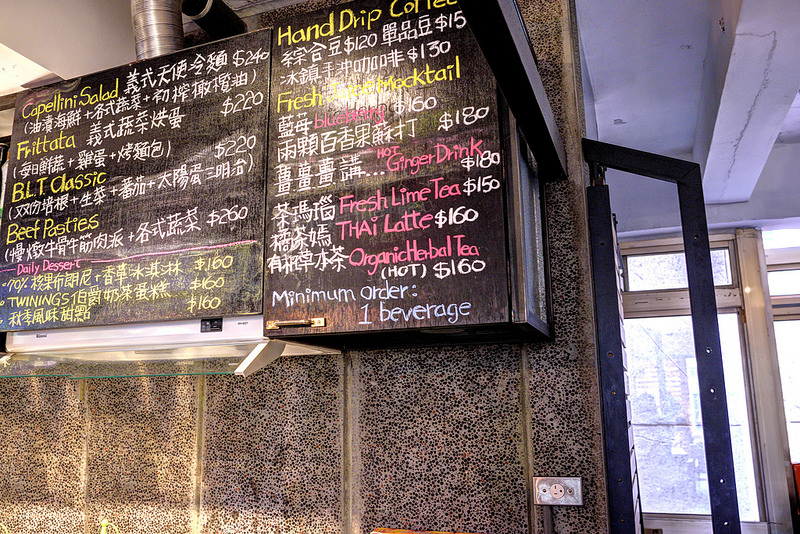 Capellini Salad 義式天使冷麵 $240
(油漬海鮮+各式蔬菜+初榨橄欖油)
Frittata 義式蔬菜烘蛋 $220
(每日鮮蔬+雞蛋+烤麵包)
B.L.T Classic $220
(双份培根+生菜+番茄+太陽蛋三明治)
Beef Pasties $260
(慢燉牛骨牛筋肉派+各式蔬菜)
Daily Dessert
70% 核果布朗尼+香草冰淇淋 $160
TWININGS 伯爵奶茶蛋糕 $160
秋季風味甜點 $160
Hand Drip Coffee
綜合豆$120 單品豆$15
冰鎮手沖咖啡 $130
Fresh Mocktail
藍莓 blueberry $160
兩顆百香果蘇打 $180
薑薑薑講... HOT Ginger Drink $180
茶瑪瑙 Fresh Lime Tea $150
橘茶媽 THAi Latte $160
有機草本茶 Organic Herbal Tea
(HOT) $160
Minimum order:
1 beverage